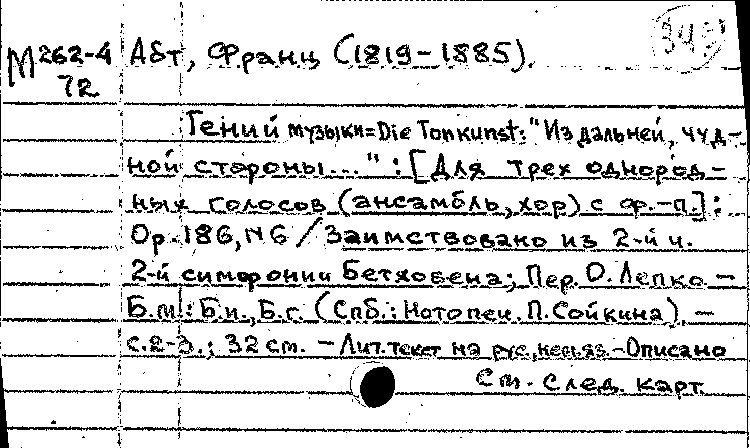 М 262-4 Абт, Франц (1819-1885).
72
Гений музыки=Die Tonkunst: "Из дальней, чуд-
ной стороны..." : [Для трех однород-
ных голосов (ансамбль, хор) с ф.-п.] :
Ор. 186, N6 / Заимствовано из 2-й ч.
2-й симфонии Бетховена; Пер. О. Лепко –
Б.м.: Б.и., Б.г. (Спб.: Нотопеч. П. Сойкина). –
с.2-3.; 32 см. – Лит. текст на рус., нем. яз. – Описано
См. след. карт.